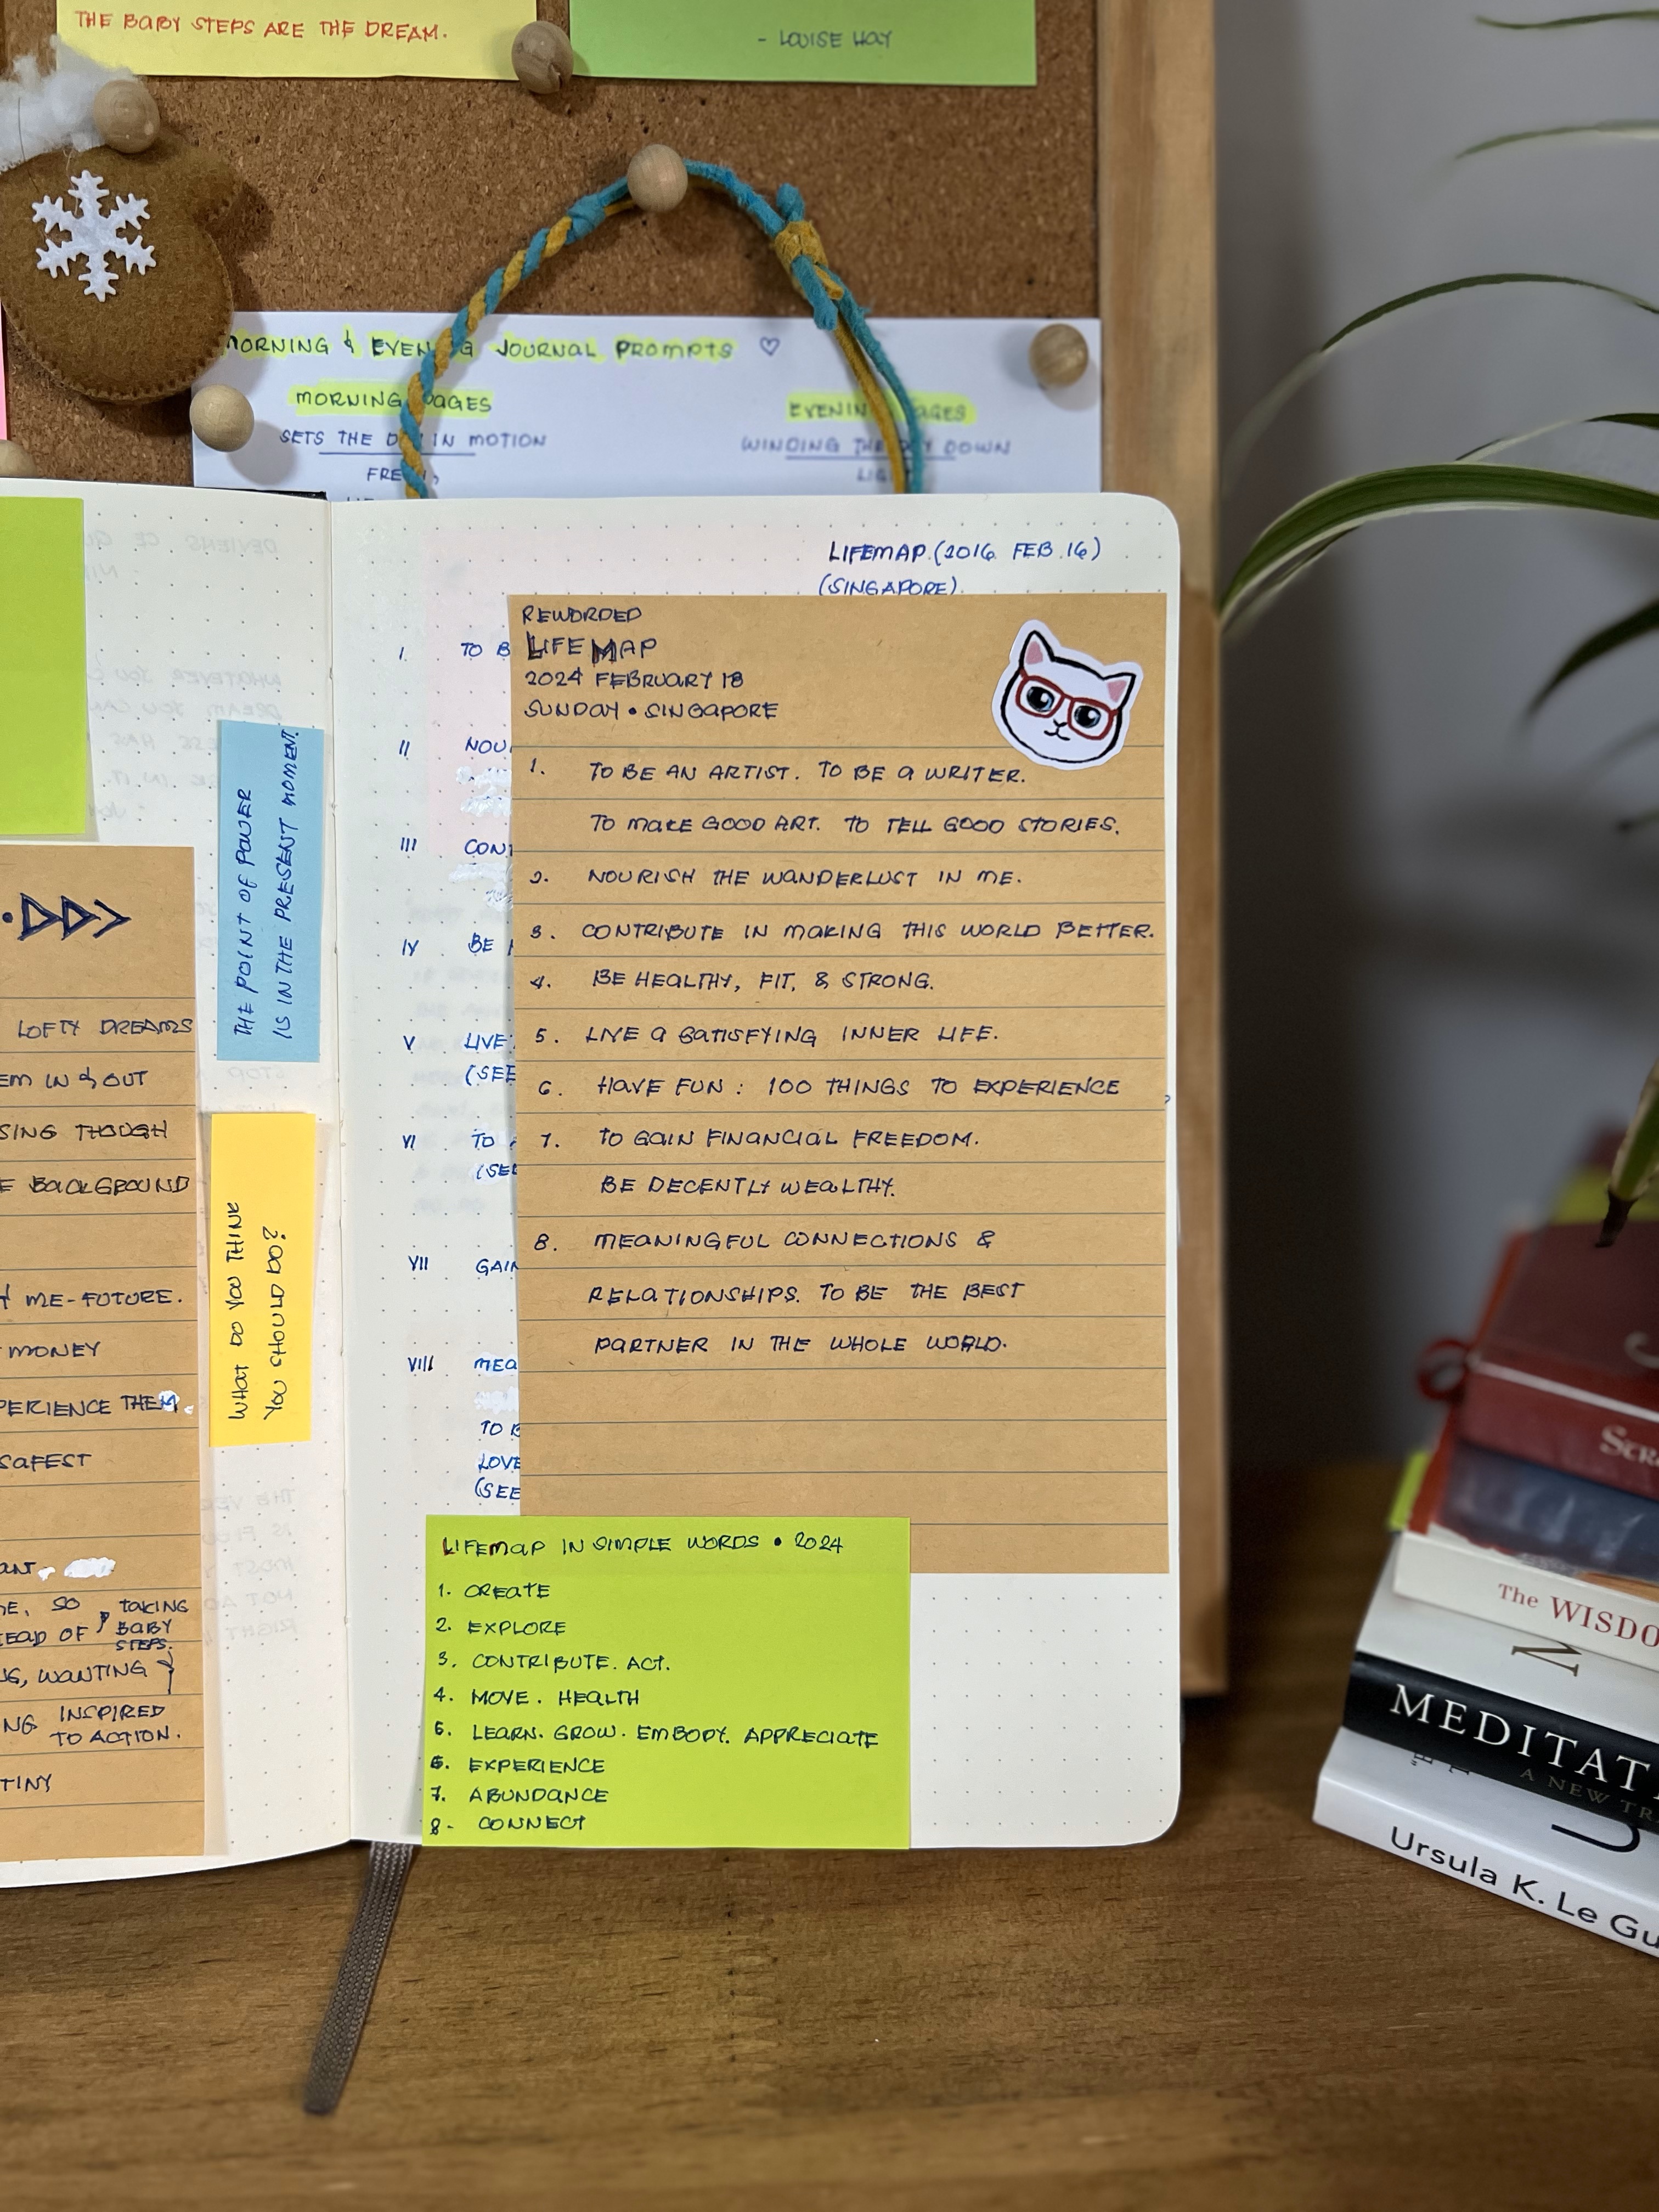 THE BABY STEPS ARE THE DREAM.
- LOUISE HAY
MORNING & EVENING JOURNAL PROMPTS ♡
MORNING PAGES
SETS THE DAY IN MOTION
FRESH,
EVENING PAGES
WINDING THE DAY DOWN
LIG
LOFTY DREAMS
EM IN & OUT
SING THOUGH
E BACKGROUND
ME-FUTURE.
MONEY
PERIENCE THEM.
SAFEST
ANT.
E, SO
EAD OF
TAKING
BABY
STEPS.
G, WANTING
NG INSPIRED
TO ACTION.
TINY
THE POINT OF POWER
IS IN THE PRESENT MOMENT.
WHAT DO YOU THINK
YOU SHOULD DO?
LIFEMAP (2016 FEB 16)
(SINGAPORE)
I. TO B
II NOU
III CON
IV BE
V LIVE
(SEE
VI TO
(SEE
VII GAIN
VIII MEA
TO B
LOVE
(SEE
REWORDED
LIFEMAP
2024 FEBRUARY 18
SUNDAY • SINGAPORE
1. TO BE AN ARTIST. TO BE A WRITER.
TO MAKE GOOD ART. TO TELL GOOD STORIES.
2. NOURISH THE WANDERLUST IN ME.
3. CONTRIBUTE IN MAKING THIS WORLD BETTER.
4. BE HEALTHY, FIT, & STRONG.
5. LIVE A SATISFYING INNER LIFE.
6. HAVE FUN : 100 THINGS TO EXPERIENCE
7. TO GAIN FINANCIAL FREEDOM.
BE DECENTLY WEALTHY.
8. MEANINGFUL CONNECTIONS &
RELATIONSHIPS. TO BE THE BEST
PARTNER IN THE WHOLE WORLD.
LIFEMAP IN SIMPLE WORDS • 2024
1. CREATE
2. EXPLORE
3. CONTRIBUTE. ACT.
4. MOVE. HEALTH
5. LEARN. GROW. EMBODY. APPRECIATE
6. EXPERIENCE
7. ABUNDANCE
8- CONNECT
SCR
The WISDO
MEDITAT
A NEW TR
Ursula K. Le Gu